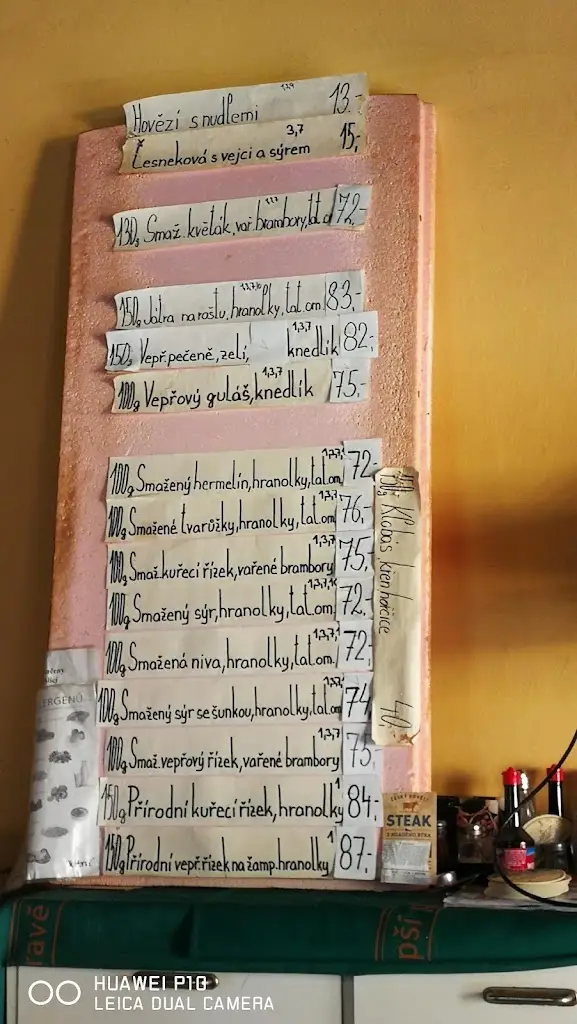 Hovězí s nudlemi 13.-
Česneková s vejci a sýrem 3,7 15,-
130g Smaž. květák, vař. brambory, tat. 72.-
150g Játra na roštu, hranolky, tat. om. 83.-
150g Vepř. pečeně, zelí, knedlík 1,3,7 82,-
100g Vepřový guláš, knedlík 1,3,7 75.-
100g Smažený hermelín, hranolky, tat. om. 72.-
100g Smažené tvarůžky, hranolky, tat. om. 76.-
100g Smaž. kuřecí řízek, vařené brambory 1,3,7 75,-
100g Smažený sýr, hranolky, tat. om. 72.-
100g Smažená niva, hranolky, tat. om. 72,-
100g Smažený sýr se šunkou, hranolky, tat. 74
100g Smaž. vepřový řízek, vařené brambory 1,3,7 75
150g Přírodní kuřecí řízek, hranolky 1 84.-
150g Přírodní vepř. řízek na žamp. hranolky 1 87.-
150g Klobás, křen hořčice 40,-
STEAK
HUAWEI P10
LEICA DUAL CAMERA